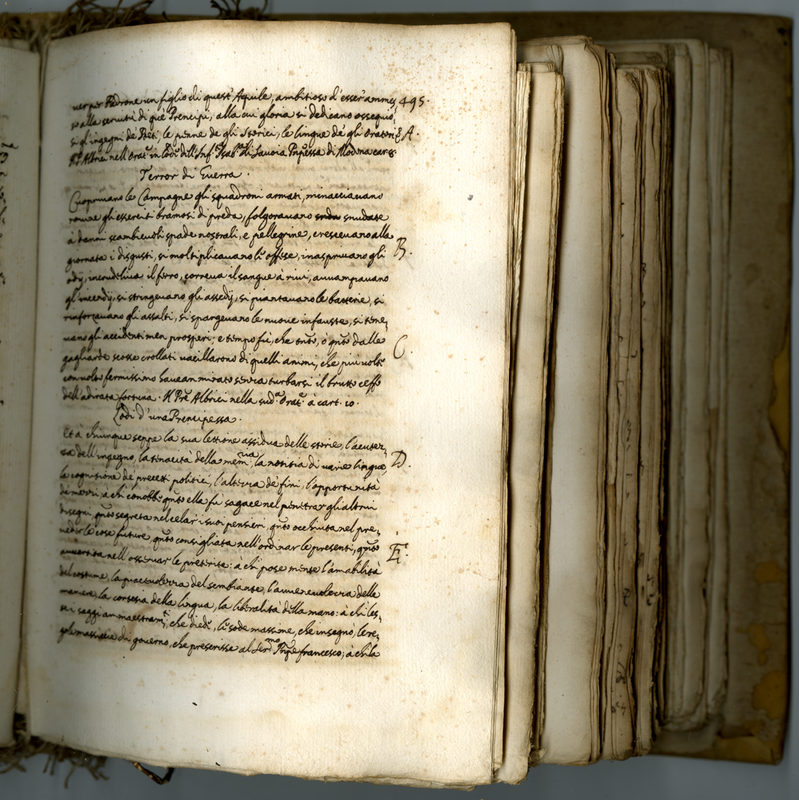 uer per Padrone un figlio di quest'Aquile, ambitioso d'esser ammes, 495.
so alla seruitù di què Prencipi, alla cui gloria si dedicano ossequio,
si gl'ingegni de Poeti, le penne de gli Storici, le lingue dè gli Oratori &. A.
Pre. Albrici nell'Orat. in lode dell'Inf. Isab. di Sauoia Prñpessa di Modana car. 8
Terror di Guerra.
Cuopriuano le Campagne gli squadroni armati, minacciauano
rouine gli esserciti bramosi di preda, folgorauano snudate
à danni scambieuoli spade nostrali, e pellegrine, cresceuano alla
giornata i disgusti, si moltiplicauano le offese, inaspriuano gli B.
odij, incrudeliua il ferro, correua il sangue à riui, auuampauano
gl'incendij, si stringeuano gli assedij, si piantauano le batterie, si
rinforzauano gli assalti, si spargeuano le nuoue infauste, si teme,
uano gli accidenti men prosperi; e tempo fù, che tutto, ò qũto dalle
gagliarde scosse crollati uacillarono di quelli animi, che più uolte C.
con uolto fermissimo hauean mirato senza turbarsi il brutto ceffo
dell'adirata fortuna. Il Pre Albrici nella sud.a Orat. à cart. 10.
Lodi d'una Prencipessa.
Et à chiunque seppe la sua lettione assidua delle storie, l'acutez,
za dell'ingegno, la tenacità della memria, la notitia di uarie lingue, D.
la cognitione de precetti politici, l'altezza de fini, l'opportunità
de mezzi; a chi conobbe qũto ella fù sagace nel penetrar gli altrui
disegni, qũto segreta nel celar i suoi pensieri, qũto occhiuta nel pre,
ueder le cose future, qũto consigliata nell'ordinar le presenti, qũto E.
auuertita nell'osseruar le preterite: à chi pose mente l'amabilità
del costume, la piaceuolezza del sembiante, l'auueneuolezza della
maniera, la cortesia della lingua, la liberalità della mano: à chi les,
se i saggi ammaestramti, che diede, le sode massime, che insegnò, le re,
gole massiccie di gouerno, che prescrisse al Sermo Prñpe francesco; à chi la